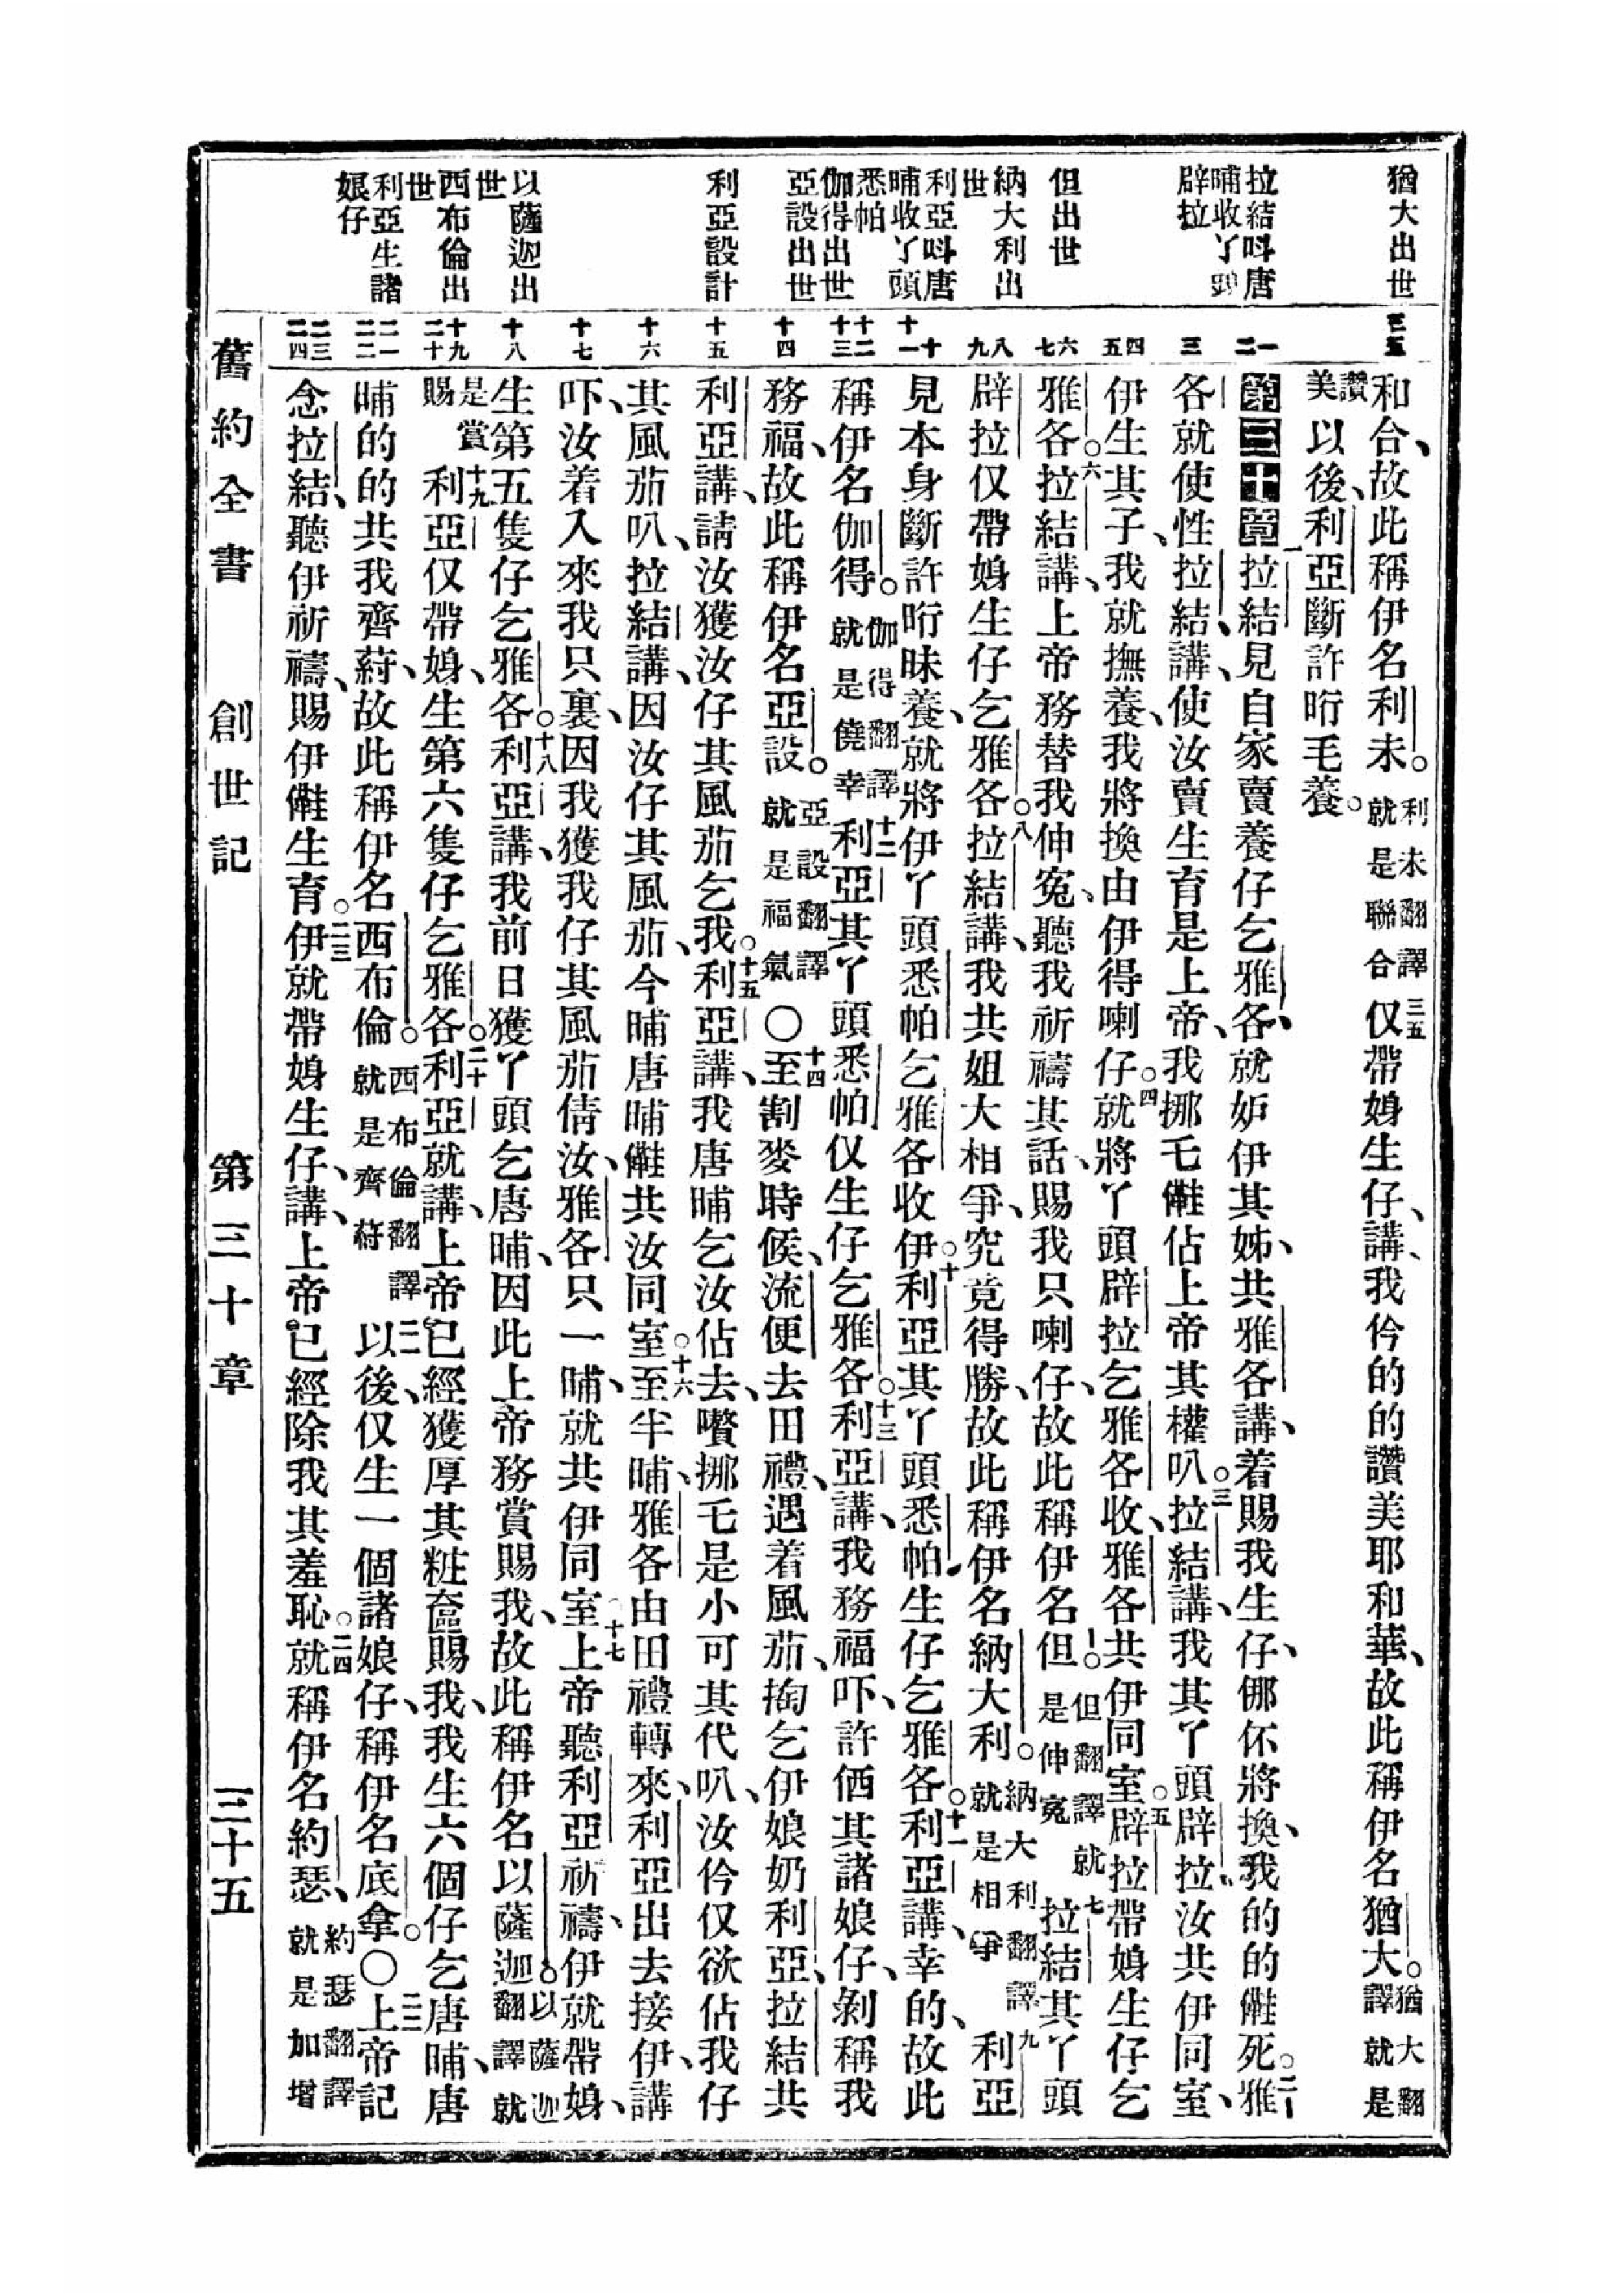 猶大出世
拉結呌唐
晡收丫頭
辟拉
但出世
納大利出
世
利亞呌唐
晡收丫頭
悉帕
伽得出世
亞設出世
利亞設計
以薩迦出
世
西布倫出
世
利亞生諸
娘仔
三五 一 二 三 四 五 六 七 八 九 十 十一 十二 十三 十四 十五 十六 十七 十八 十九 二十 二一 二二 二三 二四
和合、故此稱伊名利未。利未翻譯就是聯合 三五仅帶生仔、講、我仱的的讚美耶和華、故此稱伊名猶大。猶大翻譯就是
讚美 以後、利亞斷許晍乇養。
第三十章 一拉結見自家賣養仔乞雅各、就妒伊其姊、共雅各講、着賜我生仔、㑚伓將換、我的的死。二雅
各就使性拉結、講、使汝賣生育是上帝、我挪乇佔上帝其權叭。三拉結講、我其丫頭辟拉、汝共伊同室、
伊生其子、我就撫養、我將換由伊得喇仔。四就將丫頭辟拉乞雅各收、雅各共伊同室。五辟拉帶生仔乞
雅各。六拉結講、上帝務替我伸寃、聽我祈禱其話、賜我只喇仔、故此稱伊名但。但翻譯就是伸寃 七拉結其丫頭
辟拉仅帶生仔乞雅各。八拉結講、我共姐大相爭、究竟得勝、故此稱伊名納大利。納大利翻譯就是相爭 九利亞
見本身斷許晍昧養、就將伊丫頭悉帕乞雅各收伊。十利亞其丫頭悉帕生仔乞雅各。十一利亞講、幸的、故此
稱伊名伽得。伽得翻譯就是僥幸 十二利亞其丫頭悉帕仅生仔乞雅各。十三利亞講、我務福吓、許価其諸娘仔、剝稱我
務福、故此稱伊名亞設。亞設翻譯就是福氣 〇十四至割麥時候、流便去田禮、遇着風茄、掏乞伊娘奶利亞、拉結共
利亞講、請汝獲汝仔其風茄乞我。十五利亞講、我唐晡乞汝佔去、嚽挪乇是小可其代叭、汝仱仅欲佔我仔
其風茄叭、拉結講、因汝仔其風茄、今晡唐晡共汝同室。十六至半晡、雅各由田禮轉來、利亞出去接伊、講
吓、汝着入來我只裏、因我獲我仔其風茄倩汝、雅各只一晡、就共伊同室。十七上帝聽利亞祈禱、伊就帶、
生第五隻仔乞雅各。十八利亞講、我前日獲丫頭乞唐晡、因此上帝務賞賜我、故此稱伊名以薩迦。以薩迦翻譯就
是賞賜 十九利亞仅帶、生第六隻仔乞雅各。二十利亞就講、上帝已經獲厚其粧奩賜我、我生六個仔乞唐晡、唐
晡的的共我齊葤、故此稱伊名西布倫。西布倫翻譯就是齊葤 二一以後、仅生一個諸娘仔、稱伊名底拿。〇二二上帝記
念拉結、聽伊祈禱、賜伊生育。二三伊就帶生仔、講、上帝已經除我其羞恥。二四就稱伊名約瑟、約瑟翻譯就是加增
舊約全書 創世記 第三十章 三十五